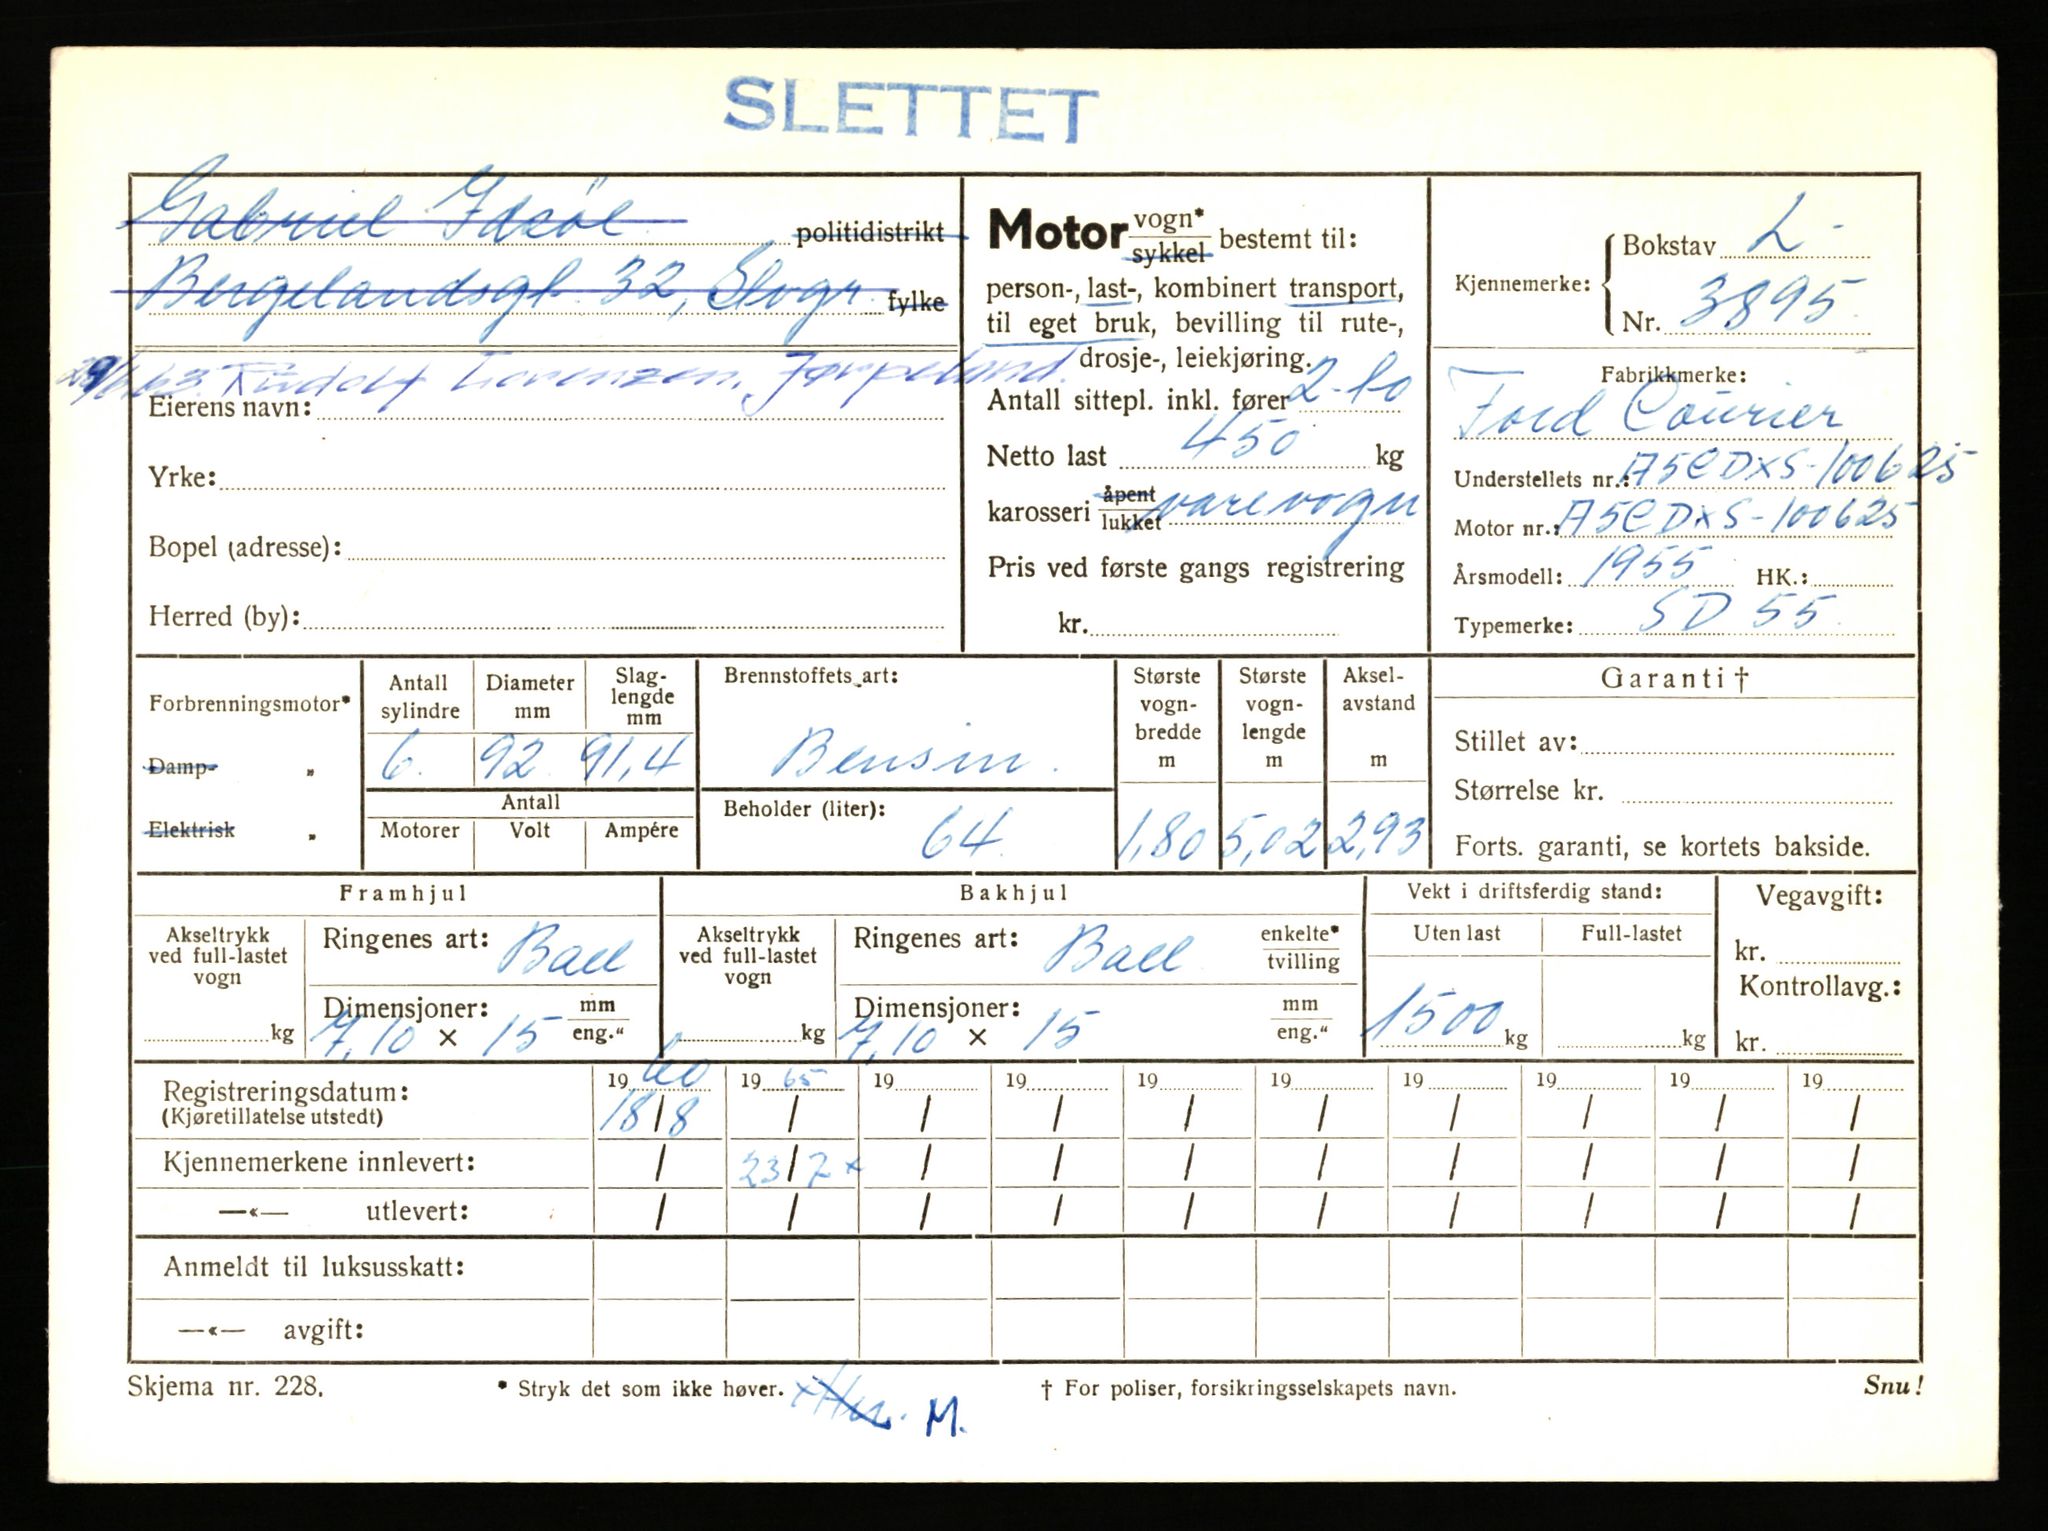 SLETTET
Gabriel Idsöe
politidistrikt
Bergelandsgt. 32, Stvgr.
fylke
63. Rudolf Lorenzen, Jørpeland.
Eierens navn:
Yrke:
Bopel (adresse):
Herred (by):
Motor vogn*
sykkel bestemt til:
person-, last-, kombinert transport,
til eget bruk, bevilling til rute-,
drosje-, leiekjøring.
Antall sittepl. inkl. fører 2
Netto last 450 kg
karosseri åpent
lukket varevogn
Pris ved første gangs registrering
kr.
Kjennemerke:
Bokstav L.
Nr. 3895
Fabrikkmerke:
Ford Courier
Understellets nr.: A5CDXS-100625
Motor nr.: A5CDXS-100625
Årsmodell: 1955 HK.:
Typemerke: SD 55
Forbrenningsmotor*
Damp- "
Elektrisk "
Antall sylindre
Diameter mm
Slag-
lengde
mm
6. 92 91,4
Antall
Motorer Volt Ampére
Brennstoffets art:
Bensin.
Beholder (liter):
64
Største
vogn-
bredde
m
1,80
Største
vogn-
lengde
m
5,02
Aksel-
avstand
m
2,93
Garanti †
Stillet av:
Størrelse kr.
Forts. garanti, se kortets bakside.
Framhjul
Akseltrykk
ved full-lastet
vogn
kg
Ringenes art: Ball
Dimensjoner: mm
7,10 × 15 eng."
Bakhjul
Akseltrykk
ved full-lastet
vogn
kg
Ringenes art: Ball enkelte*
tvilling
Dimensjoner: mm
7,10 × 15 eng."
Vekt i driftsferdig stand:
Uten last Full-lastet
1500 kg kg
Vegavgift:
kr.
Kontrollavg.:
kr.
Registreringsdatum: 19 60 19 65 19 19 19 19 19 19 19 19
(Kjøretillatelse utstedt) 18/8 / / / / / / / / /
Kjennemerkene innlevert: / 23/7 x / / / / / / / /
—«— utlevert: / / / / / / / / / /
Anmeldt til luksusskatt:
—«— avgift:
Skjema nr. 228. * Stryk det som ikke høver. † For poliser, forsikringsselskapets navn. Snu!
M.